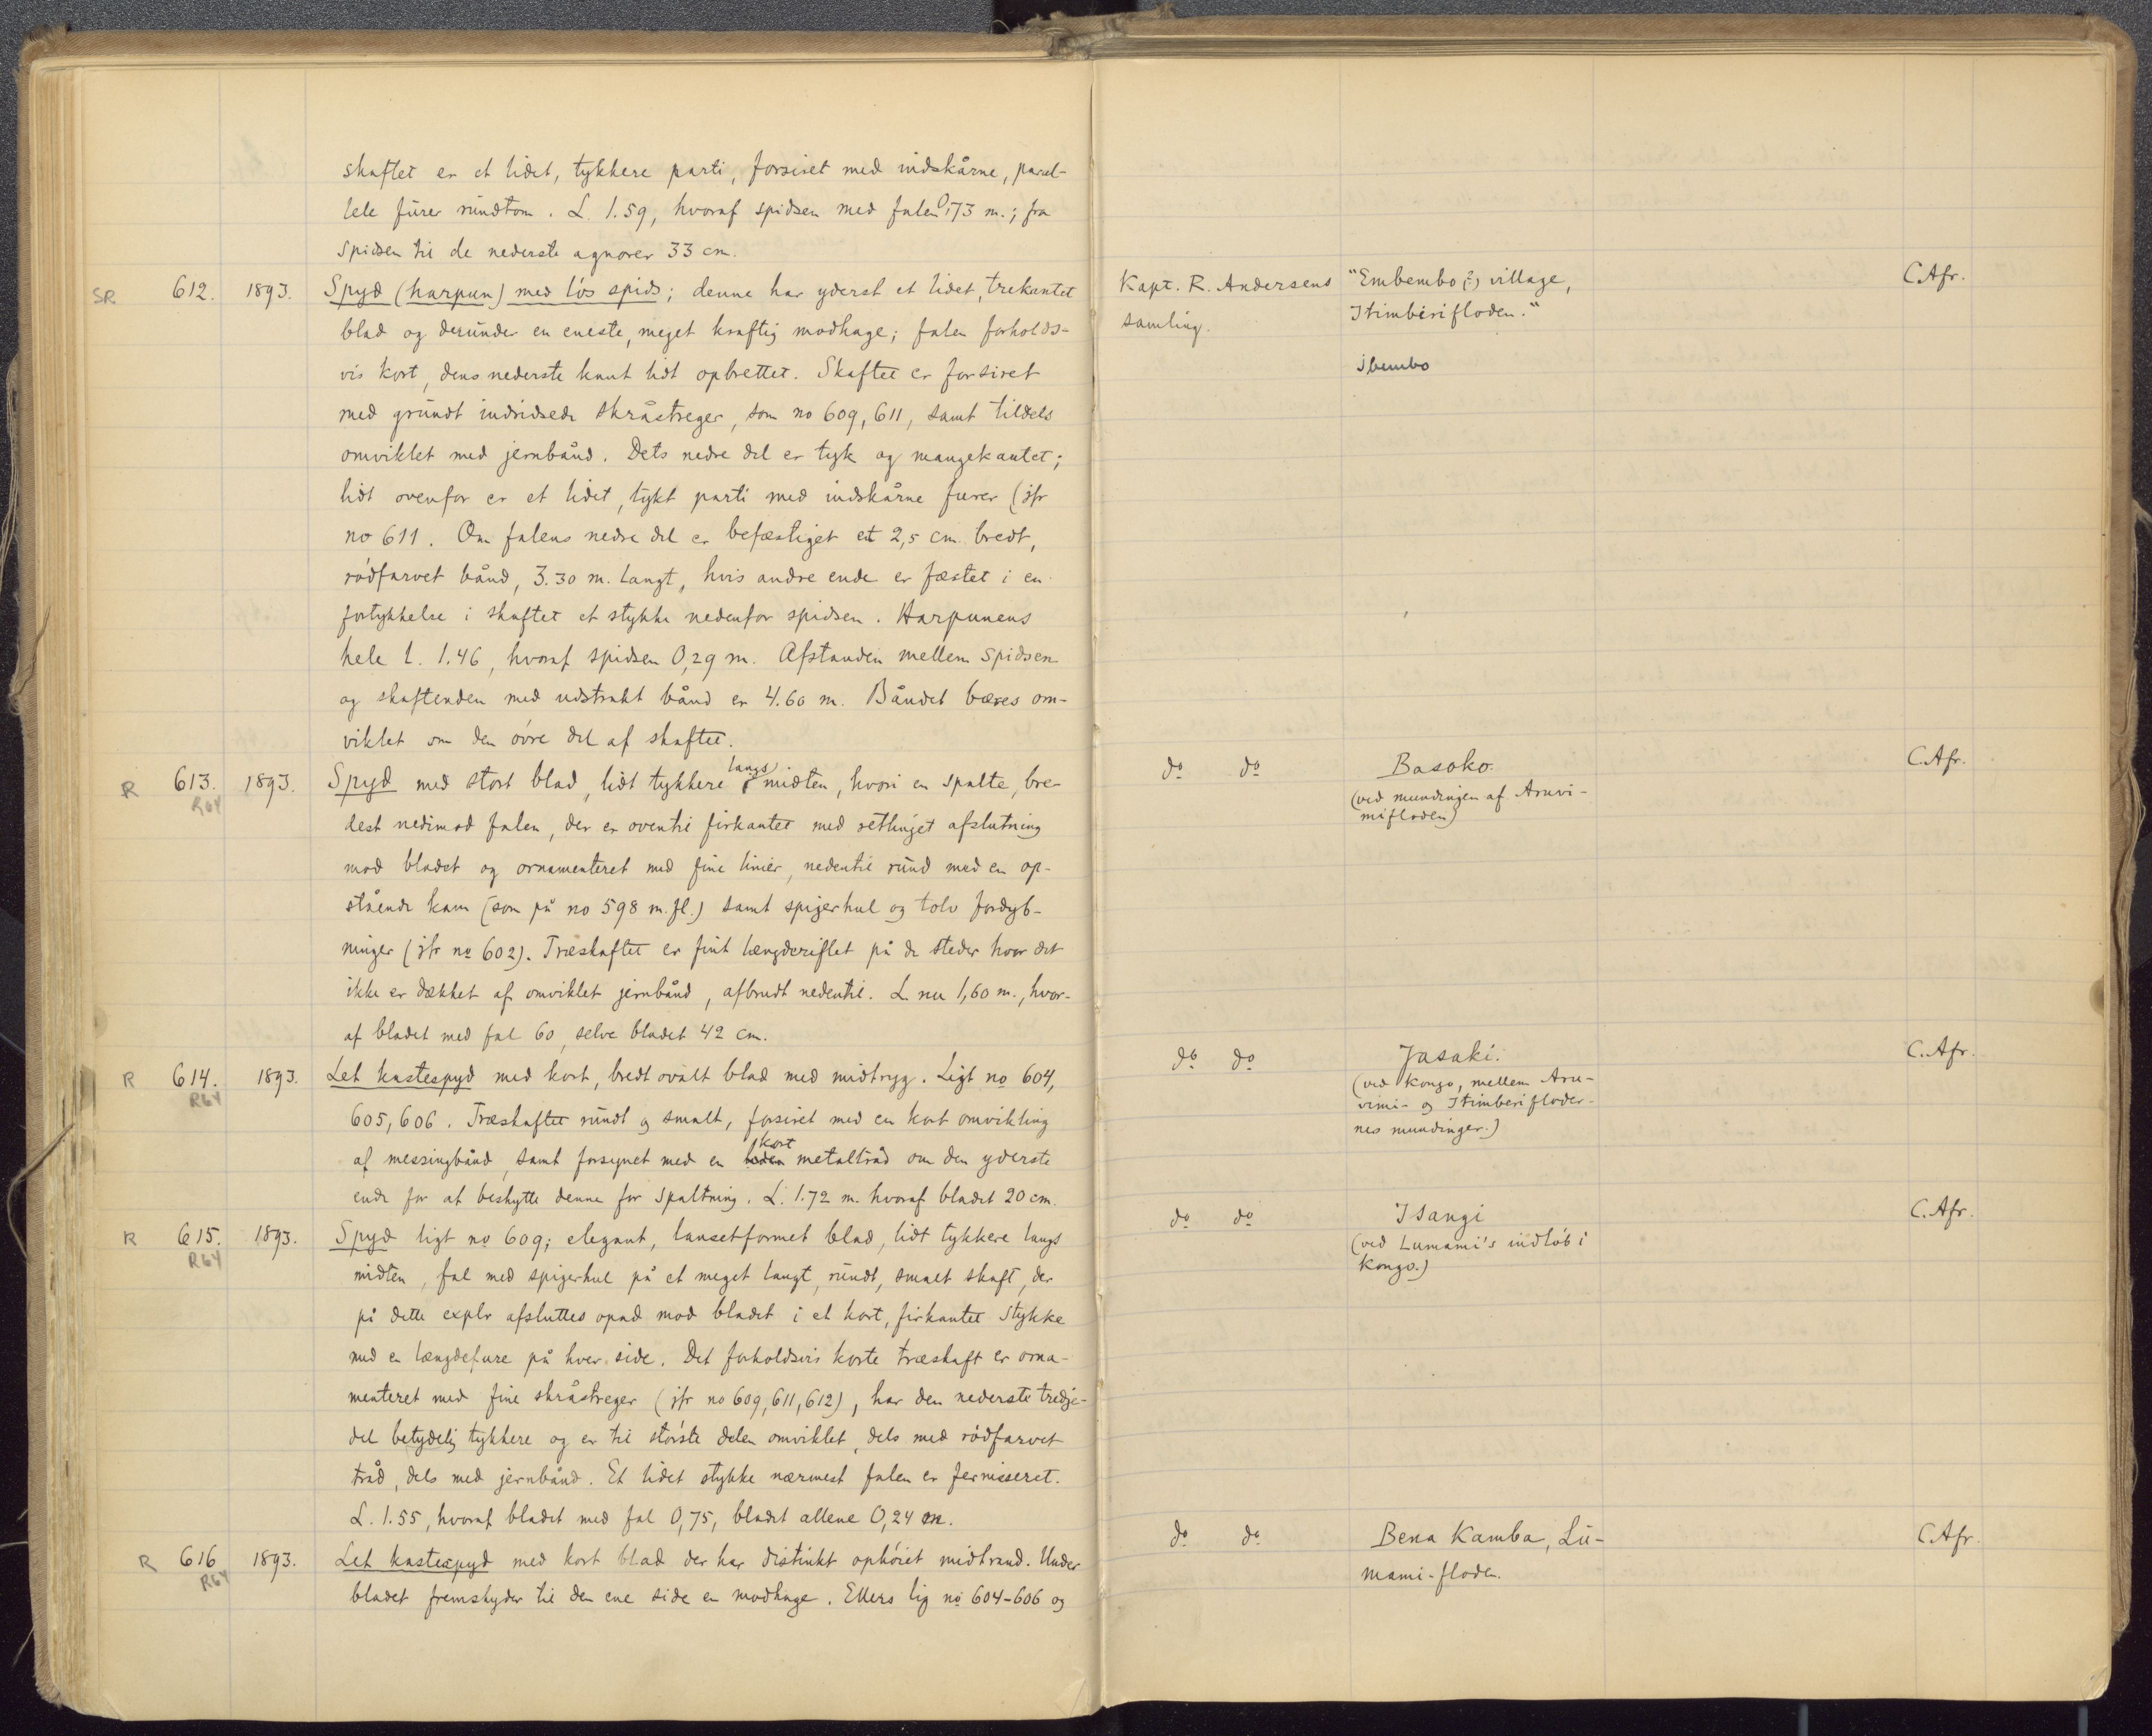 skaftet er et lidet, tykkere parti, forsiret med indskårne, paral-
lele furer rundtom. L. 1.59, hvoraf spidsen med falen 0,73 m.; fra
spidsen til de nederste agnorer 33 cm.
SR 612. 1893. Spyd (harpun) med løs spids; denne har yderst et lidet, trekantet
blad og derunder en eneste, meget kraftig modhage; falen forholds-
vis kort, dens nederste kant lidt opbrettet. Skaftet er forsiret
med grundt indridsede skråstreger, som no 609, 611, samt tildels
omviklet med jernbånd. Dets nedre del er tyk og mangekantet;
lidt ovenfor er et lidet, tykt parti med indskårne furer (jfr
no 611. Om falens nedre del er befæstiget et 2,5 cm. bredt,
rødfarvet bånd, 3.30 m. langt, hvis andre ende er fæstet i en
fortykkelse i skaftet et stykke nedenfor spidsen. Harpunens
hele l. 1.46, hvoraf spidsen 0,29 m. Afstanden mellem spidsen
og skaftenden med udstrakt bånd er 4.60 m. Båndet bæres om-
viklet om den øvre del af skaftet.
R 613. 1893. Spyd med stort blad, lidt tykkere langs midten, hvori en spalte, bre-
R64
dest nedimod falen, der er oventil firkantet med retlinjet afslutning
mod bladet og ornamenteret med fine linier, nedentil rund med en op-
stående kam (som på no 598 m.fl.) samt spigerhul og tolv fordyb-
ninger (jfr no 602). Træskaftet er fint længderiflet på de steder hvor det
ikke er dækket af omviklet jernbånd, afbrudt nedentil. L. nu 1,60 m., hvor-
af bladet med fal 60, selve bladet 42 cm.
R 614. 1893. Let kastespyd med kort, bredt ovalt blad med midtryg. Ligt no 604,
R64
605, 606. Træskaftet rundt og smalt, forsiret med en kort omvikling
af messingbånd, samt forsynet med en kort metaltråd om den yderste
ende for at beskytte denne for spaltning. L. 1.72 m. hvoraf bladet 20 cm.
R 615. 1893. Spyd ligt no 609; elegant, lansetformet blad, lidt tykkere langs
R64
midten, fal med spigerhul på et meget langt, rundt, smalt skaft, der
på dette explr afsluttes opad mod bladet i et kort, firkantet stykke
med en længdefure på hver side. Det forholdsvis korte træskaft er orna-
menteret med fine skråstreger (jfr no 609, 611, 612), har den nederste tredje-
del betydelig tykkere og er til største delen omviklet, dels med rødfarvet
tråd, dels med jernbånd. Et lidet stykke nærmest falen er fernisseret.
L. 1.55, hvoraf bladet med fal 0,75, bladet allene 0,24 m.
R 616 1893. Let kastespyd med kort blad der har distinkt ophøiet midtrand. Under
R64
bladet fremskyder til den ene side en modhage. Ellers lig no 604-606 og
Kapt. R. Andersens "Embembo (?) village, C.Afr.
samling. Itimbirifloden."
Ibembo
do do Basoko. C.Afr.
(ved mundingen af Aruvi-
mifloden)
do do Jasaki. C.Afr.
(ved Kongo, mellem Aru-
vimi- og Itimberifloder-
nes mundinger.)
do do Isangi C.Afr.
(ved Lumami's indløb i
Kongo.)
do do Bena Kamba, Lu- C.Afr.
mami-floden.